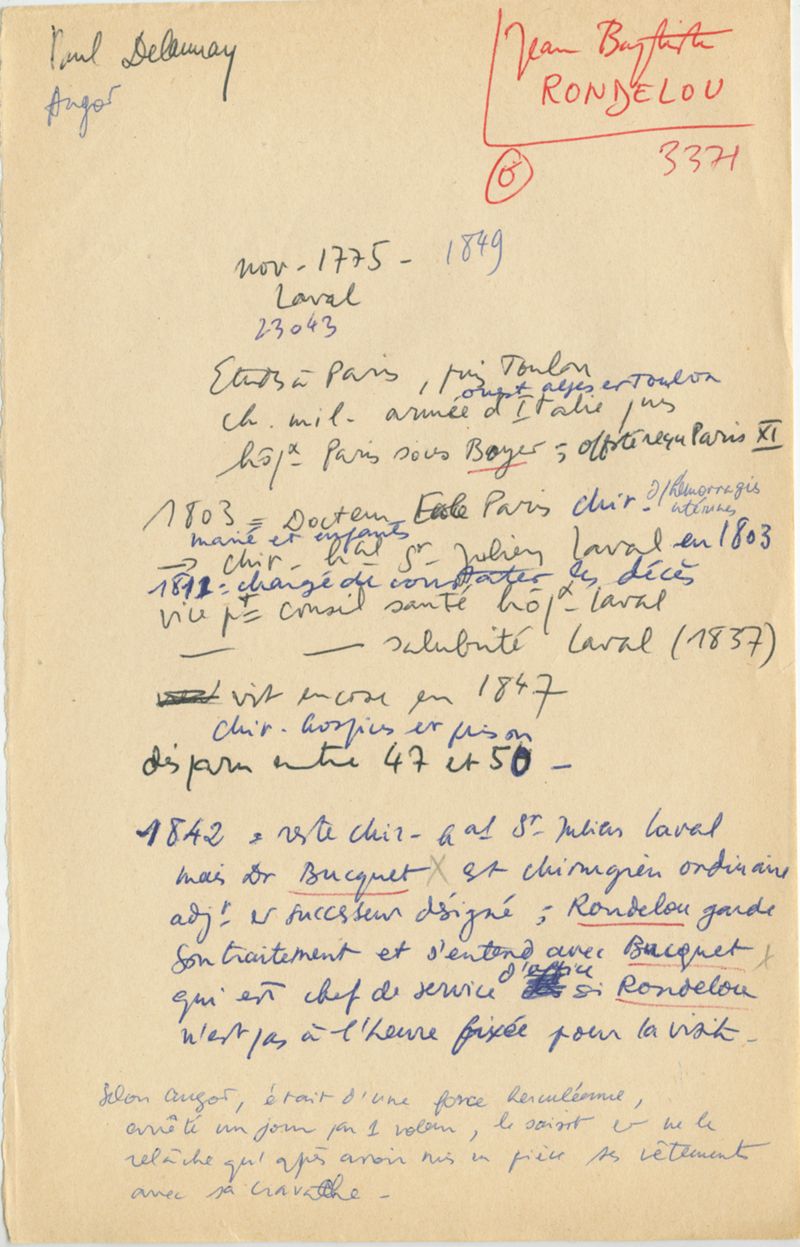 Paul Delaunay
Angot
Jean Baptiste
RONDELOU
6
3371
nov - 1775 - 1849
Laval
23043
Etudes à Paris, puis Toulon
ouest alpes et Toulon
ch. mil - armée d'Italie puis
hôpx Paris sous Boyer = offsté reçu Paris XI
1803 = Docteur Ecole Paris chir - d/hémorragies internes
marié et enfants
→ chir - hal St Julien Laval en 1803
1812 = chargé de constater les décès
vice pt = conseil santé hôpx - Laval
— — salubrité Laval (1837)
vit encore en 1847
chir - hospices et prison
disparu entre 47 et 50 -
1842 = reste chir - hal St - Julien Laval
mais Dr Bucquet X est chirurgien ordinaire
adjt et successeur désigné ; Rondelou garde
son traitement et s'entend avec Bucquet x
qui est chef de service d'office si Rondelou
n'est pas à l'heure fixée pour la visite -
Selon Angot, était d'une force herculéenne,
arrêté un jour par 1 voleur, le saisit et ne le
relâche qu'après avoir mis en pièce ses vêtements
avec sa cravache -